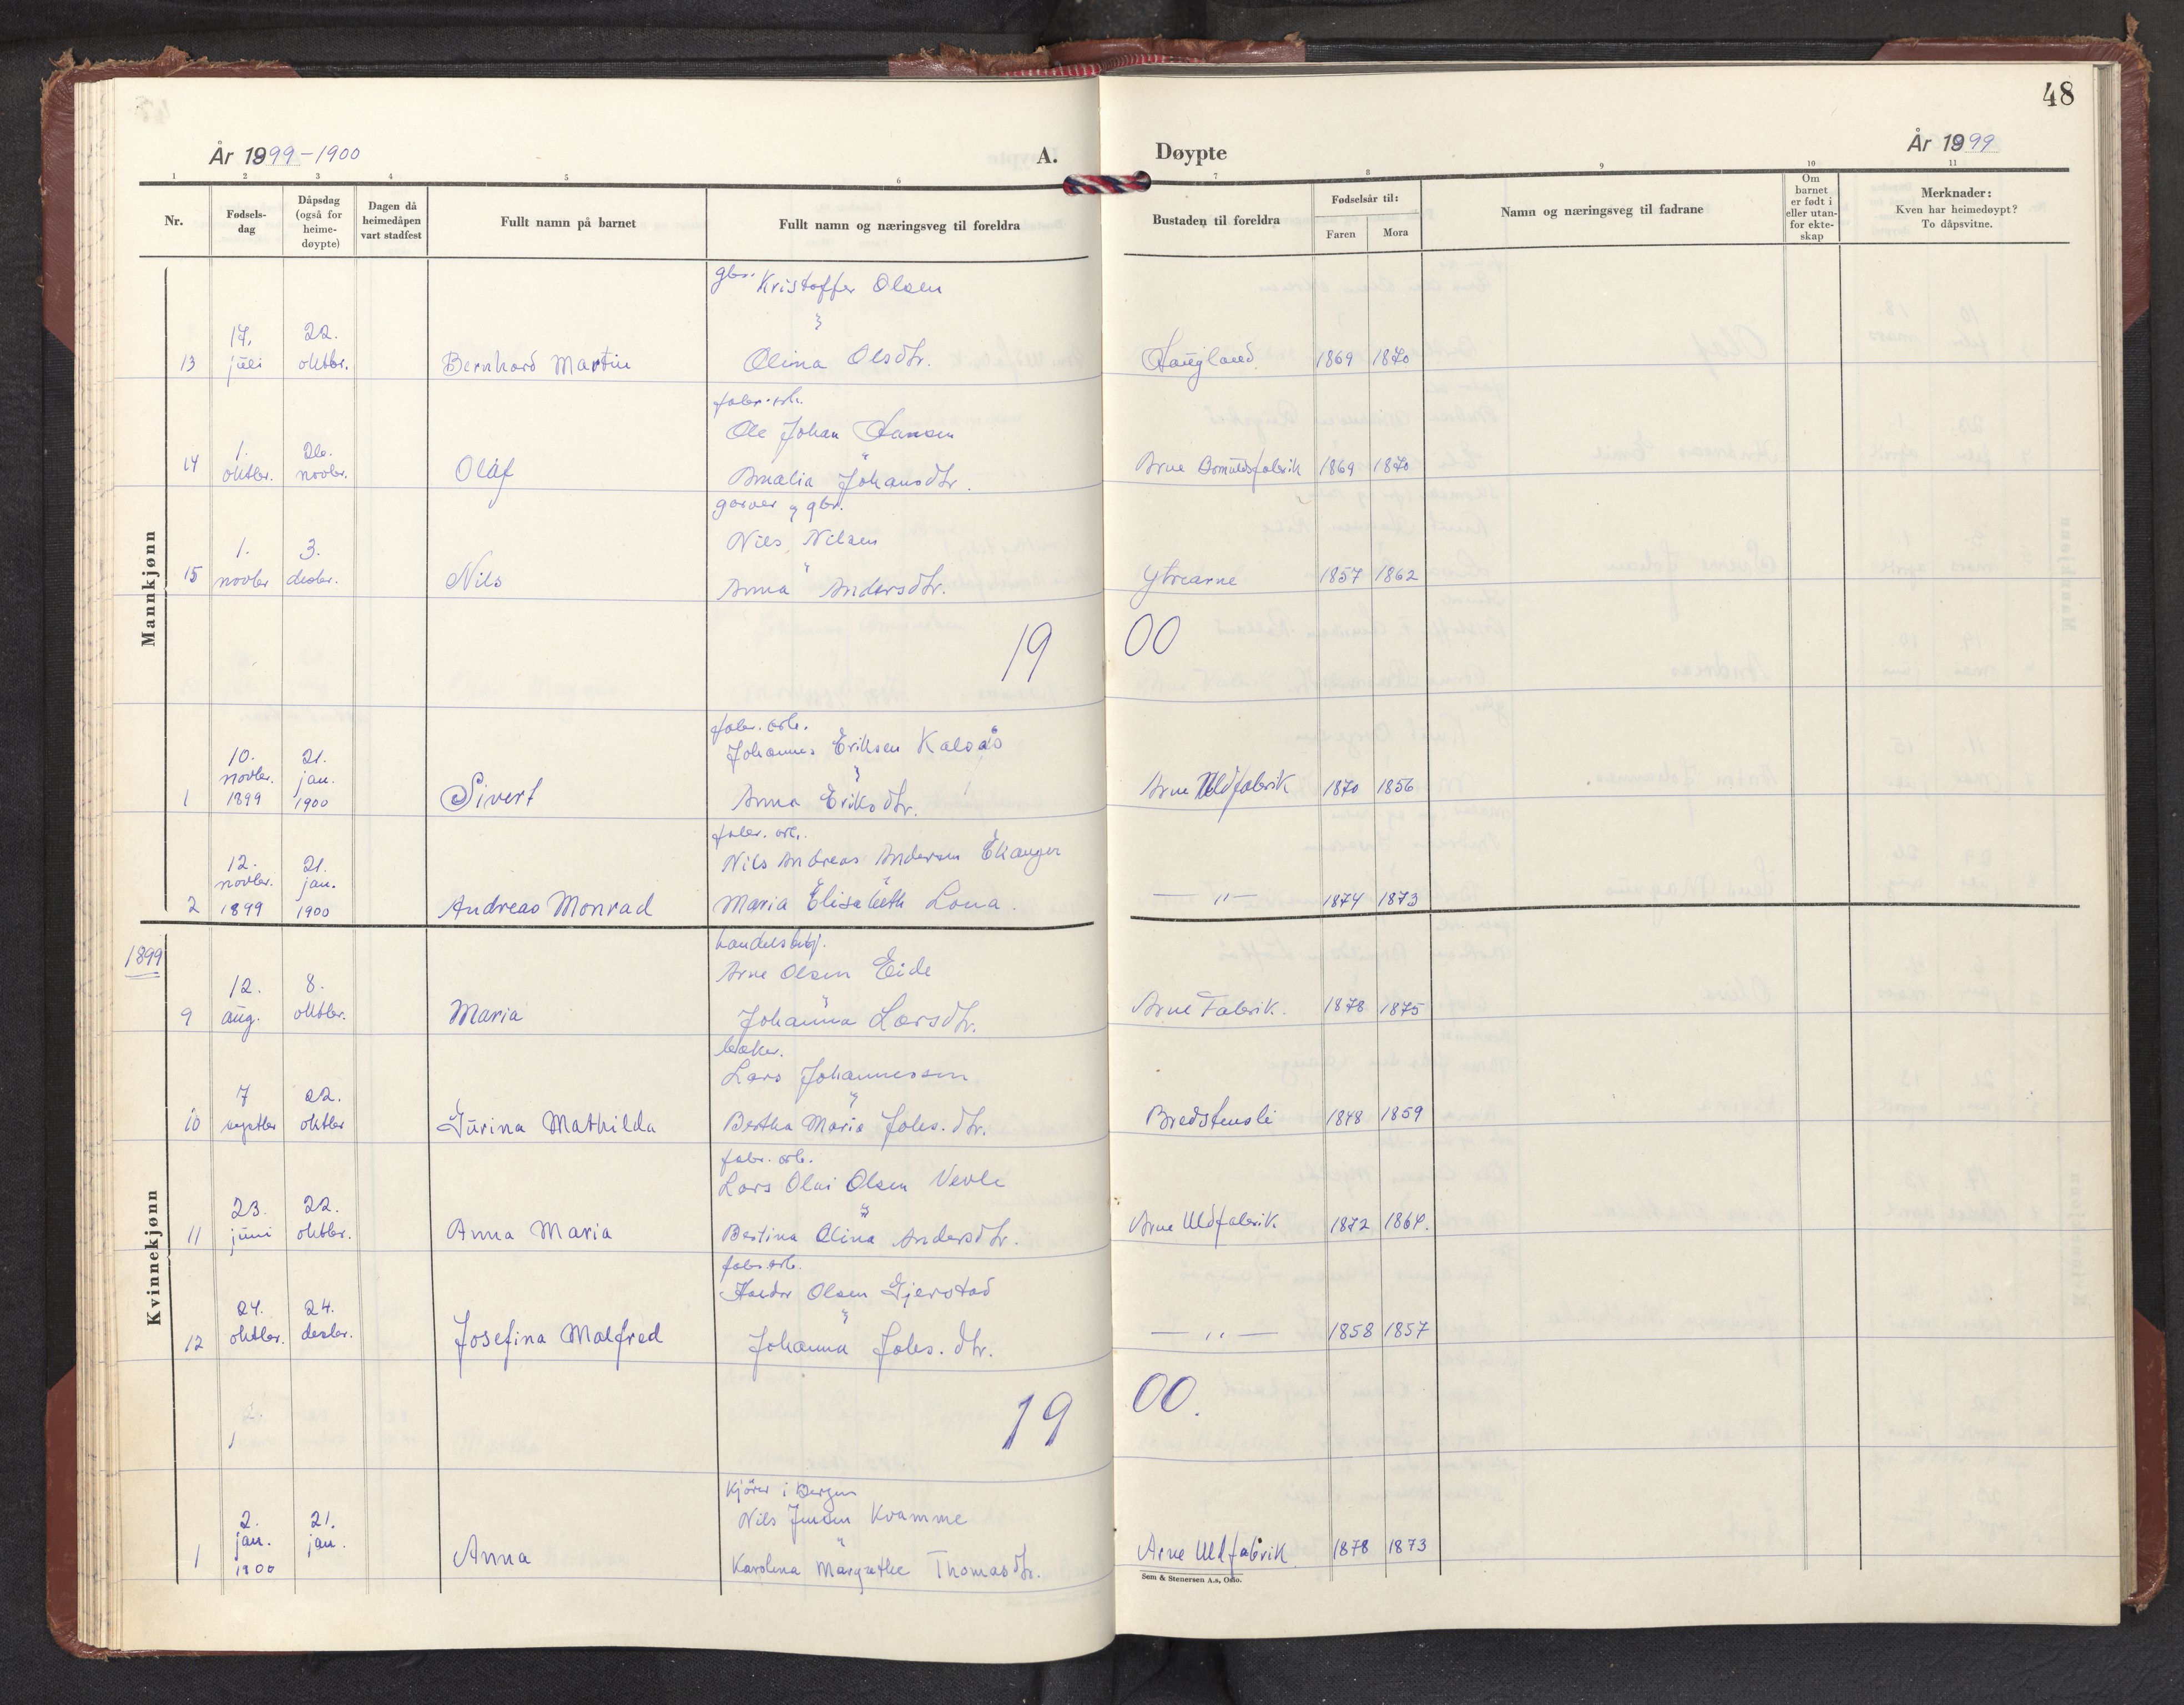 48
År 1899-1900
A.
Døypte
År 1899
1 2 3 4 5 6 7 8 9 10 11
Nr.
Fødsels-
dag
Dåpsdag
(også for
heime-
døypte)
Dagen då
heimedåpen
vart stadfest
Fullt namn på barnet
Fullt namn og næringsveg til foreldra
Bustaden til foreldra
Fødselsår til:
Faren Mora
Namn og næringsveg til fadrane
Om
barnet
er født i
eller utan-
for ekte-
skap
Merknader:
Kven har heimedøypt?
To dåpsvitne.
Mannkjønn
gbr. Kristoffer Olsen
17. 22.
13 juli oktbr. Bernhard Martin Olina Olsdtr. Haugland 1869 1870
fabr. arb.
Ole Johan Hansen
1. 26.
14 oktbr. novbr. Olaf Amalia Johansdtr. Arne Bomuldsfabrik 1869 1870
garver og gbr.
Nils Nilsen
1. 3.
15 novbr desbr. Nils Anna Andersdtr. Ytrearne 1857 1862
19 00
fabr. arb.
Johannes Eriksen Kalsås
10. 21.
novbr. jan.
1 1899 1900 Sivert Anna Eriksdtr. Arne Uldfabrik 1870 1856
fabr. arb.
Nils Andreas Andersen Ekanger
12. 21.
novbr. jan.
2 1899 1900 Andreas Monrad Maria Elisabeth Lona. — " — 1874 1873
Kvinnekjønn
1899
handelsbetj.
Arne Olsen Eide
12. 8.
9 aug. oktbr. Maria Johanna Larsdtr. Arne Fabrik. 1878 1875
baker.
Lars Johannessen
7 22.
10 septbr oktbr Gurina Mathilda Bertha Maria Johs. dtr. Bredstensli 1848 1859
fabr. arb.
Lars Olai Olsen Vevle
23. 22.
11 juni oktbr. Anna Maria Bertina Olina Andersdtr. Arne Uldfabrik 1872 1864.
fabr. arb.
Haldor Olsen Gjerstad
24. 24.
12 oktbr. desbr. Josefina Malfred Johanna Johs. dtr. — " — 1858 1857
19 00.
Kjörer i Bergen
Nils Jensen Kvamme
2. 21.
jan. jan.
1 1900 Anna Karolina Margrethe Thomasdtr. Arne Uldfabrik. 1878 1873
Sem & Stenersen A.s, Oslo.